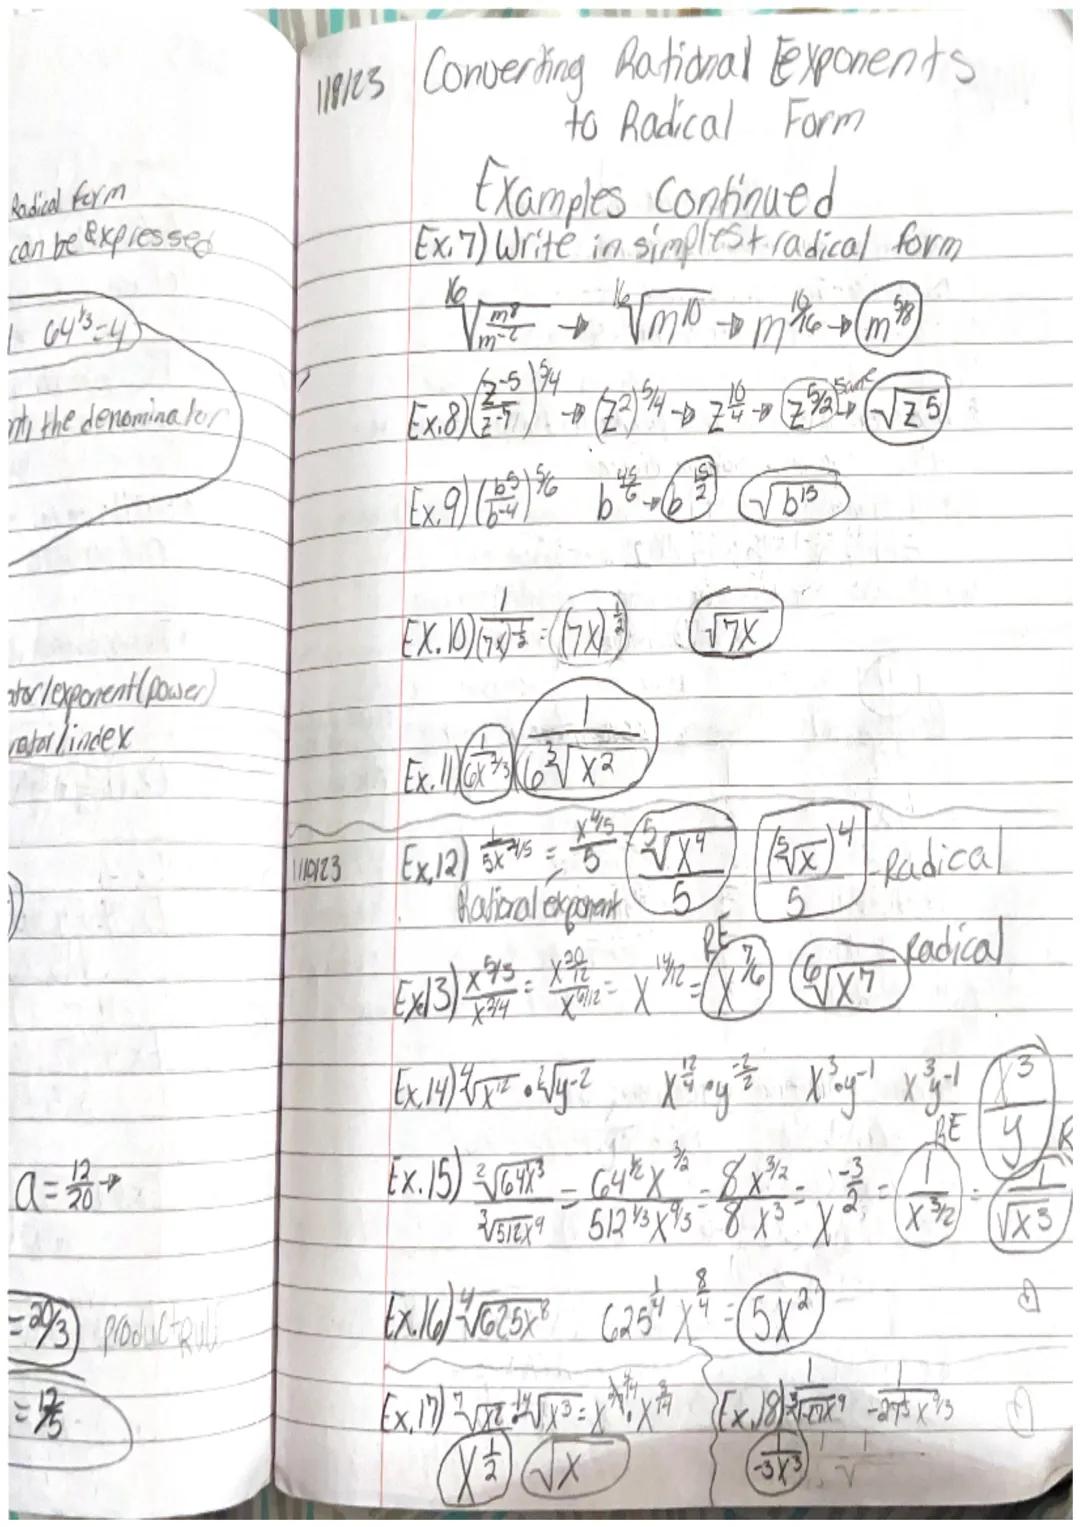 Radical form
can be expressed
64^1/3=4
the denominator
/exponent(power)
/index
a=12/20→
=20/3 product rule
1/9/23 Converting Rational Exponents
to Radical Form
Examples Continued
Ex.7) Write in simplest radical form
16√(m^8/m^-2) → 16√(m^10) → m^10/16 → m^5/8
Ex.8) (z^-5/z^-7)^5/4 → (z^2)^5/4 → z^10/4 → z^5/2 same → √z^5
Ex.9) (b^5/b^-4)^5/6 b^45/6 → b^15/2 √b^15
EX.10) 1/(7x)^-1/2 = (7x)^1/2 √7x
Ex.11) 1/6x^2/3 1/(6 3√x^2)
1/10/23 Ex.12) 1/5x^-4/5 = x^4/5/5 5√x^4/5 (5√x)^4/5 -Radical
Rational exponent
Ex.13) x^5/3/x^3/4 = x^20/12/x^9/12 = x^14/12 = RE x^7/6 6√x^7 Radical
Ex.14) 4√x^12 • 2√y^-2 x^12/4 • y^-2/2 x^3•y^-1 x^3y^-1 x^3/y
Ex.15) 2√64x^3/3√512x^9 = 64^1/2 x^3/2/512^1/3 x^9/3 = 8x^3/2/8x^3 = x^-3/2 = RE 1/x^3/2 = R 1/√x^3
Ex.16) 4√625x^8 625^1/4 x^8/4 = 5x^2
Ex.17) 7√x^2 14√x^3 = • x^3/14
x^1/2 √x
Ex.18) 1/3√-27x^9 1/-27^1/3 x^9/3
1/-3x^3